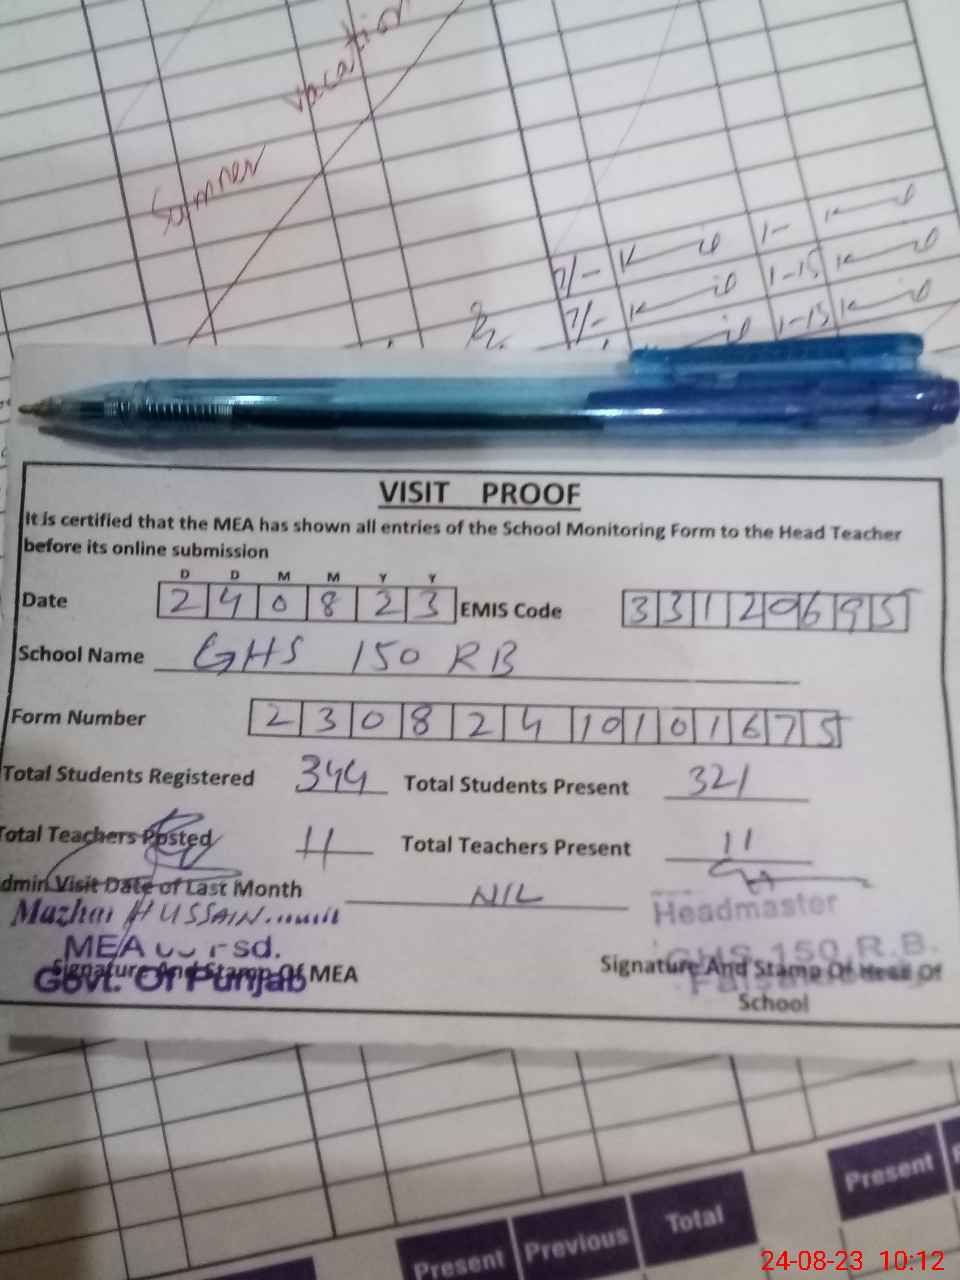 Summer vacation
7/-
1-
7/-
1-15
1-15
VISIT PROOF
It is certified that the MEA has shown all entries of the School Monitoring Form to the Head Teacher
before its online submission
D D M M Y Y
Date 2 4 0 8 2 3 EMIS Code 3 3 1 2 0 6 9 5
School Name GHS 150 RB
Form Number 2 3 0 8 2 4 10 1 0 1 6 7 5
Total Students Registered 344 Total Students Present 321
Total Teachers Posted 11 Total Teachers Present 11
dmin Visit Date of Last Month NIL
Mazhar HUSSAIN Headmaster
MEA Fsd. GHS 150 R.B.
Govt. Of Punjab
Signature And Stamp Of MEA Signature And Stamp Of Head Of
School
Present Previous Total Present
24-08-23 10:12